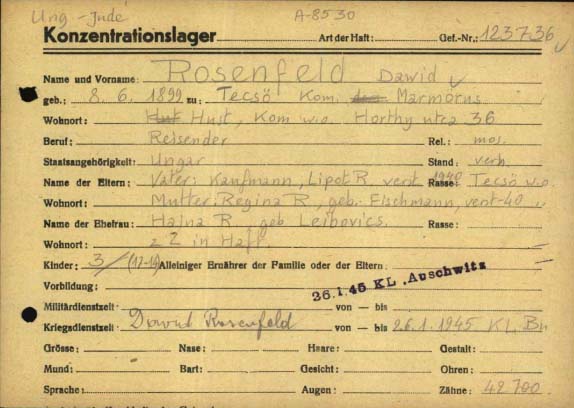 Ung.-Jude A-8530
Konzentrationslager Art der Haft: Gef.-Nr.: 123736
Name und Vorname: Rosenfeld Dawid
geb.: 8. 6. 1899 zu: Tecsö Kom. Marmorus
Wohnort: Hust, Kom w.o. Horthy utca 36
Beruf: Reisender Rel.: mos.
Staatsangehörigkeit: Ungar Stand: verh.
Name der Eltern: Vater: Kaufmann, Lipot R. verst. 1940 Rasse: Tecsö w.o.
Wohnort: Mutter: Regina R, geb. Fischmann, verst-40
Name der Ehefrau: Hajna R. geb Leibovics. Rasse:
Wohnort: z Z in Haft.
Kinder: 3 (12-19) Alleiniger Ernährer der Familie oder der Eltern:
Vorbildung: 26.1.45 KL. Auschwitz
Militärdienstzeit: von — bis
Kriegsdienstzeit: Dawid Rosenfeld von — bis 26.1.1945 KL. Bu
Grösse: Nase: Haare: Gestalt:
Mund: Bart: Gesicht: Ohren:
Sprache: Augen: Zähne: 42700.